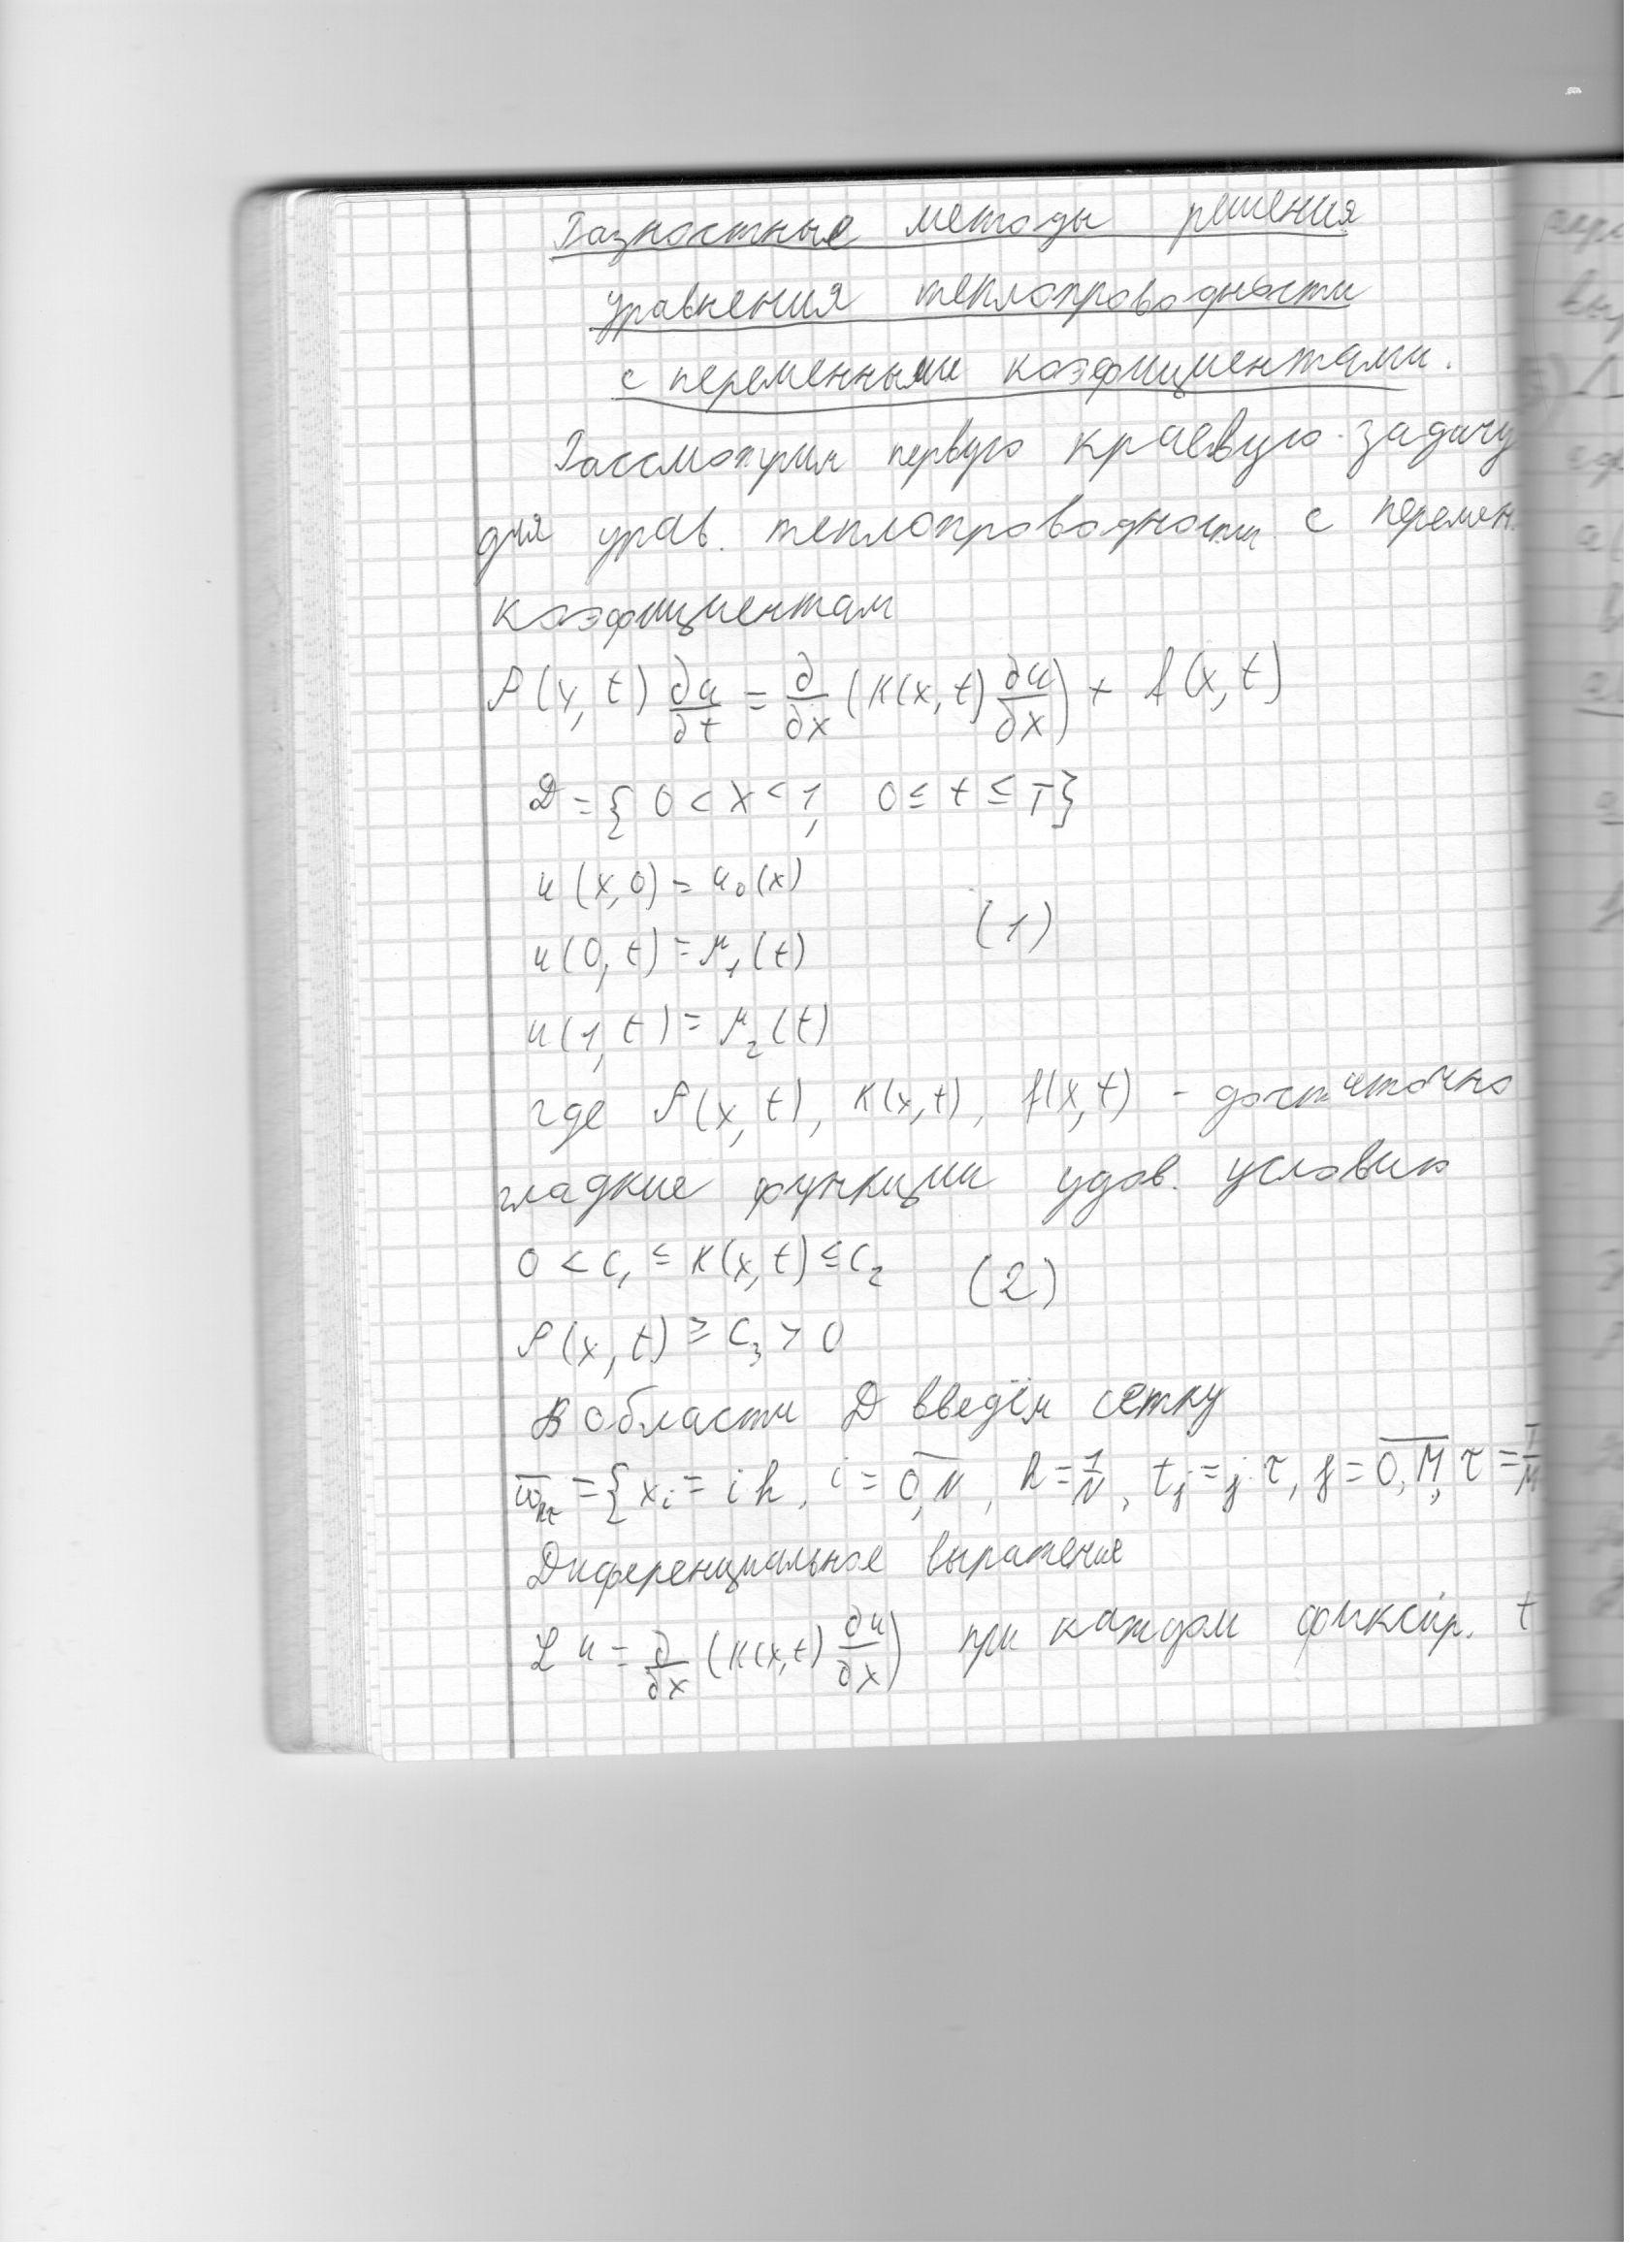 Разностные методы решения
уравнения теплопроводности
с переменными коэфициентами.
Рассмотрим первую краевую задачу
для урав. теплопроводности с перемен.
коэфициентам
ρ(x, t) ∂u/∂t = ∂/∂x (K(x, t) ∂u/∂x) + f(x, t)
D = { 0 < x < 1, 0 ≤ t ≤ T}
u(x, 0) = u₀(x)
(1)
u(0, t) = μ₁(t)
u(1, t) = μ₂(t)
где ρ(x, t), K(x, t), f(x, t) - достаточно
гладкие функции удов. условию
0 < c₁ ≤ K(x, t) ≤ c₂ (2)
ρ(x, t) ≥ c₃ > 0
В области D введём сетку
ω̅hτ = { xᵢ = i h, i = 0, N, h = 1/N, tⱼ = j·τ, j = 0, M, τ = T/M
Диференциальное выражение
L u = ∂/∂x (K(x, t) ∂u/∂x) при каждом фиксир. t